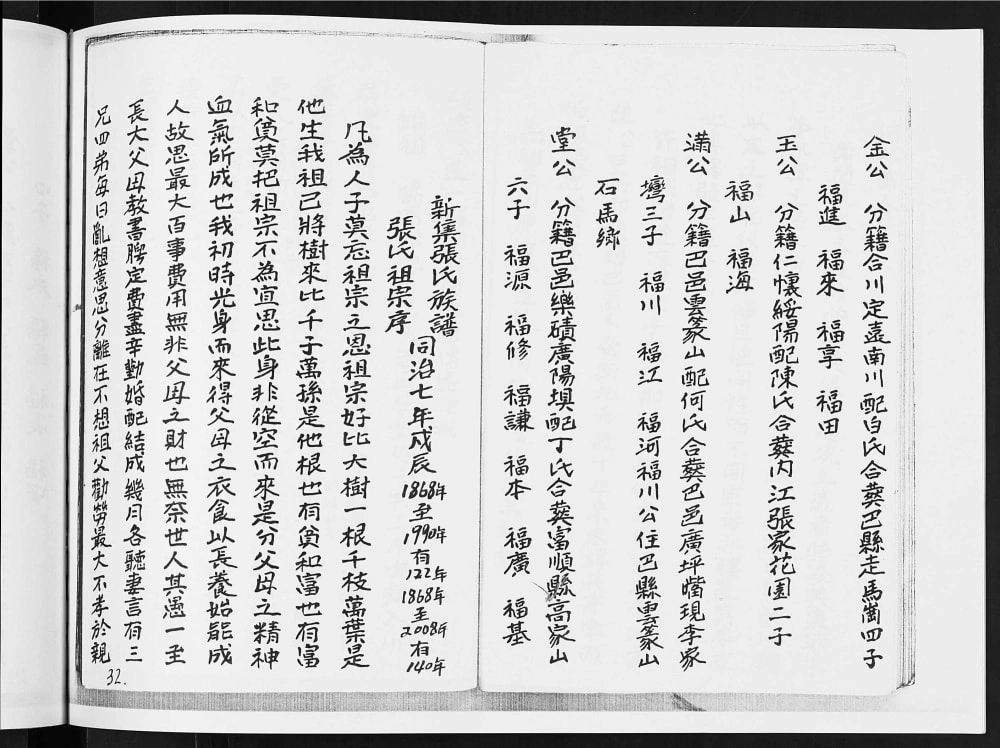 金公　分籍合川定遠南川配白氏合葬巴縣走馬崗四子
福進　福來　福享　福田
玉公　分籍仁懷綏陽配陳氏合葬內江張家花園二子
福山　福海
滿公　分籍巴邑雲篆山配何氏合葬巴邑廣坪堦現李家
灣三子　福川　福江　福河福川公住巴縣雲篆山
石馬鄉
堂公　分籍巴邑樂磧廣陽垻配丁氏合葬富順縣高家山
六子　福源　福修　福謙　福本　福廣　福基
新集張氏族譜
張氏祖宗序
同治七年戊辰
1868年
至
1990年
有
122年
1868年
至
2008年
有
140年
凡為人子莫忘祖宗之恩祖宗好比大樹一根千枝萬葉是
他生我祖已將樹來比千子萬孫是他根也有貧和富也有富
和貧莫把祖宗不為宜思此身非從空而來是分父母之精神
血氣所成也我初時光身而來得父母之衣食以長養始能成
人故思最大百事費用無非父母之財也無奈世人其愚一至
長大父母教書聘定費盡辛勤婚配結成幾月各聽妻言有三
兄四弟每日亂想意思分離在不想祖父勸勞最大不孝於親
32.